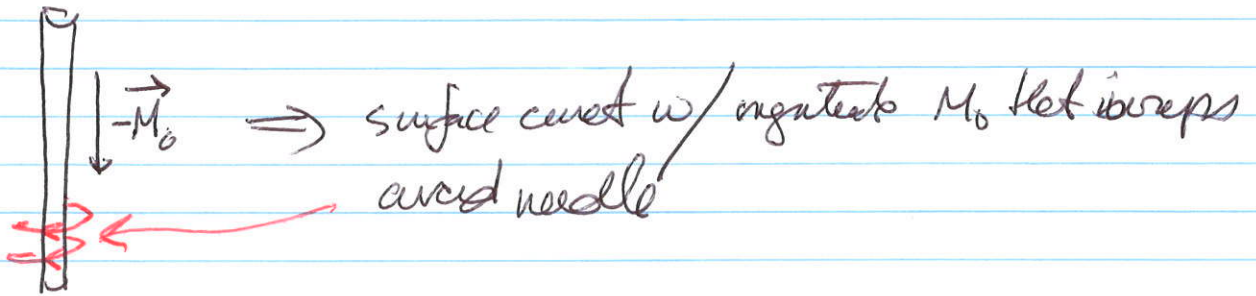 -M₀ ⇒ surface current w/ magnitude M₀ that wraps
around needle